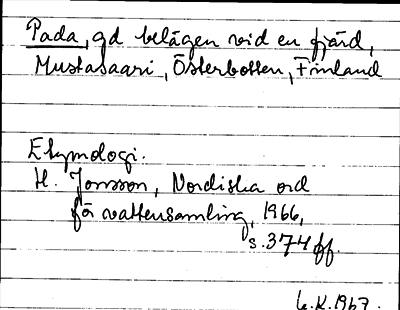 Pada, gd belägen vid en fjärd,
Mustasaari, Österbotten, Finland
Etymologi.
H. Jonsson, Nordiska ord
för vattensamling, 1966,
s. 374 ff.
G.K. 1967.